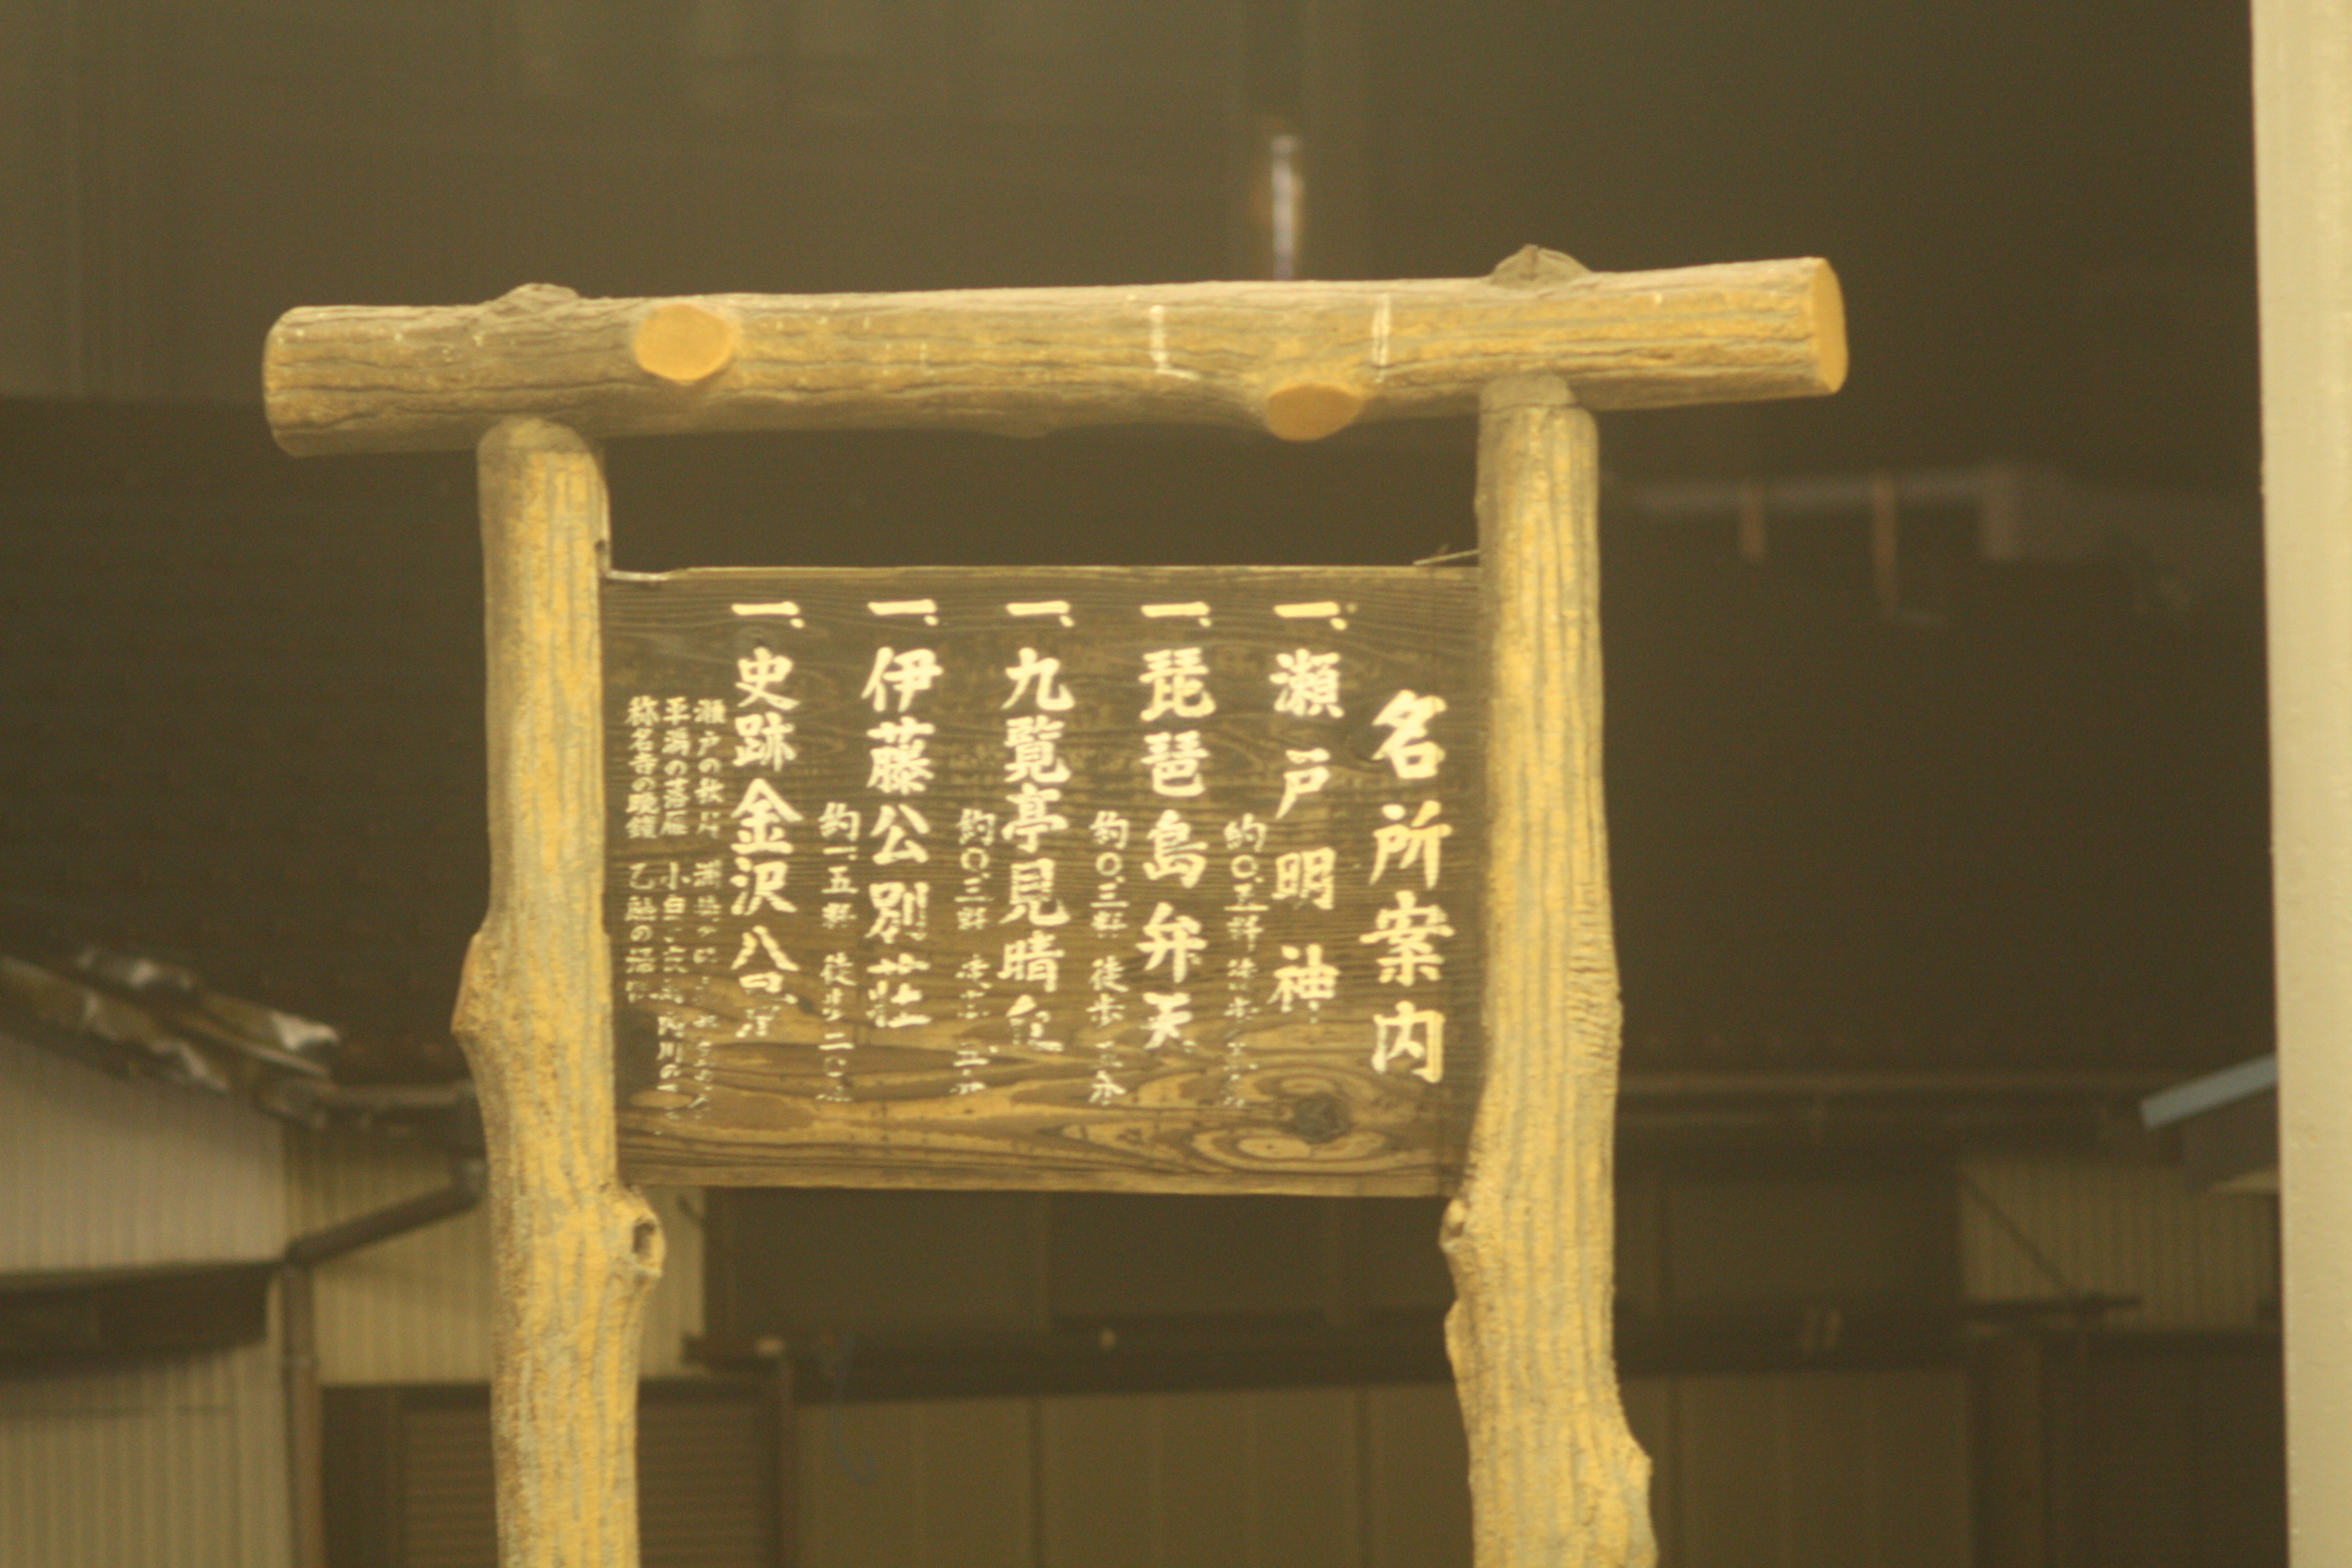 名所案内
一、瀬戸明神
約〇.五粁 徒歩
一、琵琶島弁天
約〇.三粁 徒歩 分
一、九覧亭見晴台
約〇.三粁
一、伊藤公別荘
約一.五粁 徒歩二〇
一、史跡金沢八景
瀬戸の秋月
平潟の落雁 小
称名寺の晩鐘 乙舳の